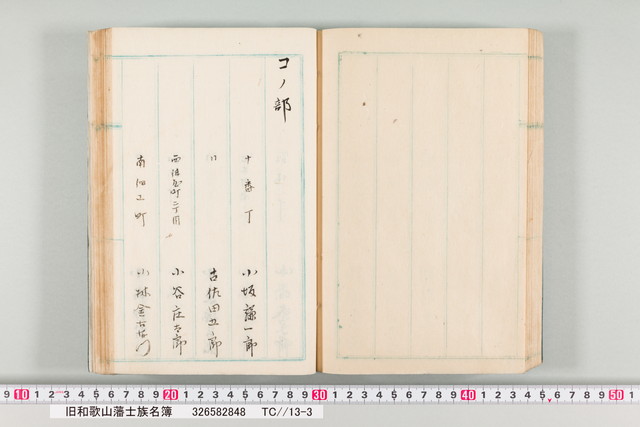 コノ部
十番丁
小坂謙一郎
〃
古佐田五郎
西旅篭町二丁目
小谷庄太郎
南田辺町
小林
9 10 1 2 3 4 5 6 7 8 9 20 1 2 3 4 5 6 7 8 9 30 1 2 3 4 5 6 7 8 9 40 1 2 3 4 5 6 7 8 9 50
旧和歌山藩士族名簿 326582848 TC//13-3